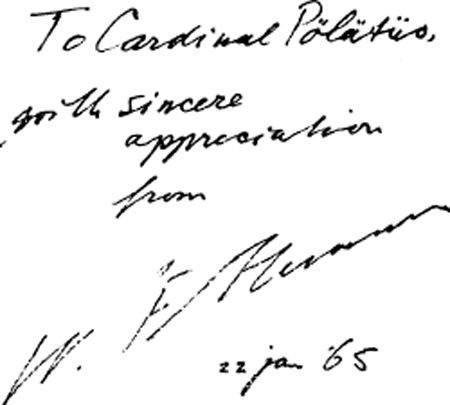 To Cardinal Pölätüo,
with sincere
appreciation
from
W.
22 jan '65